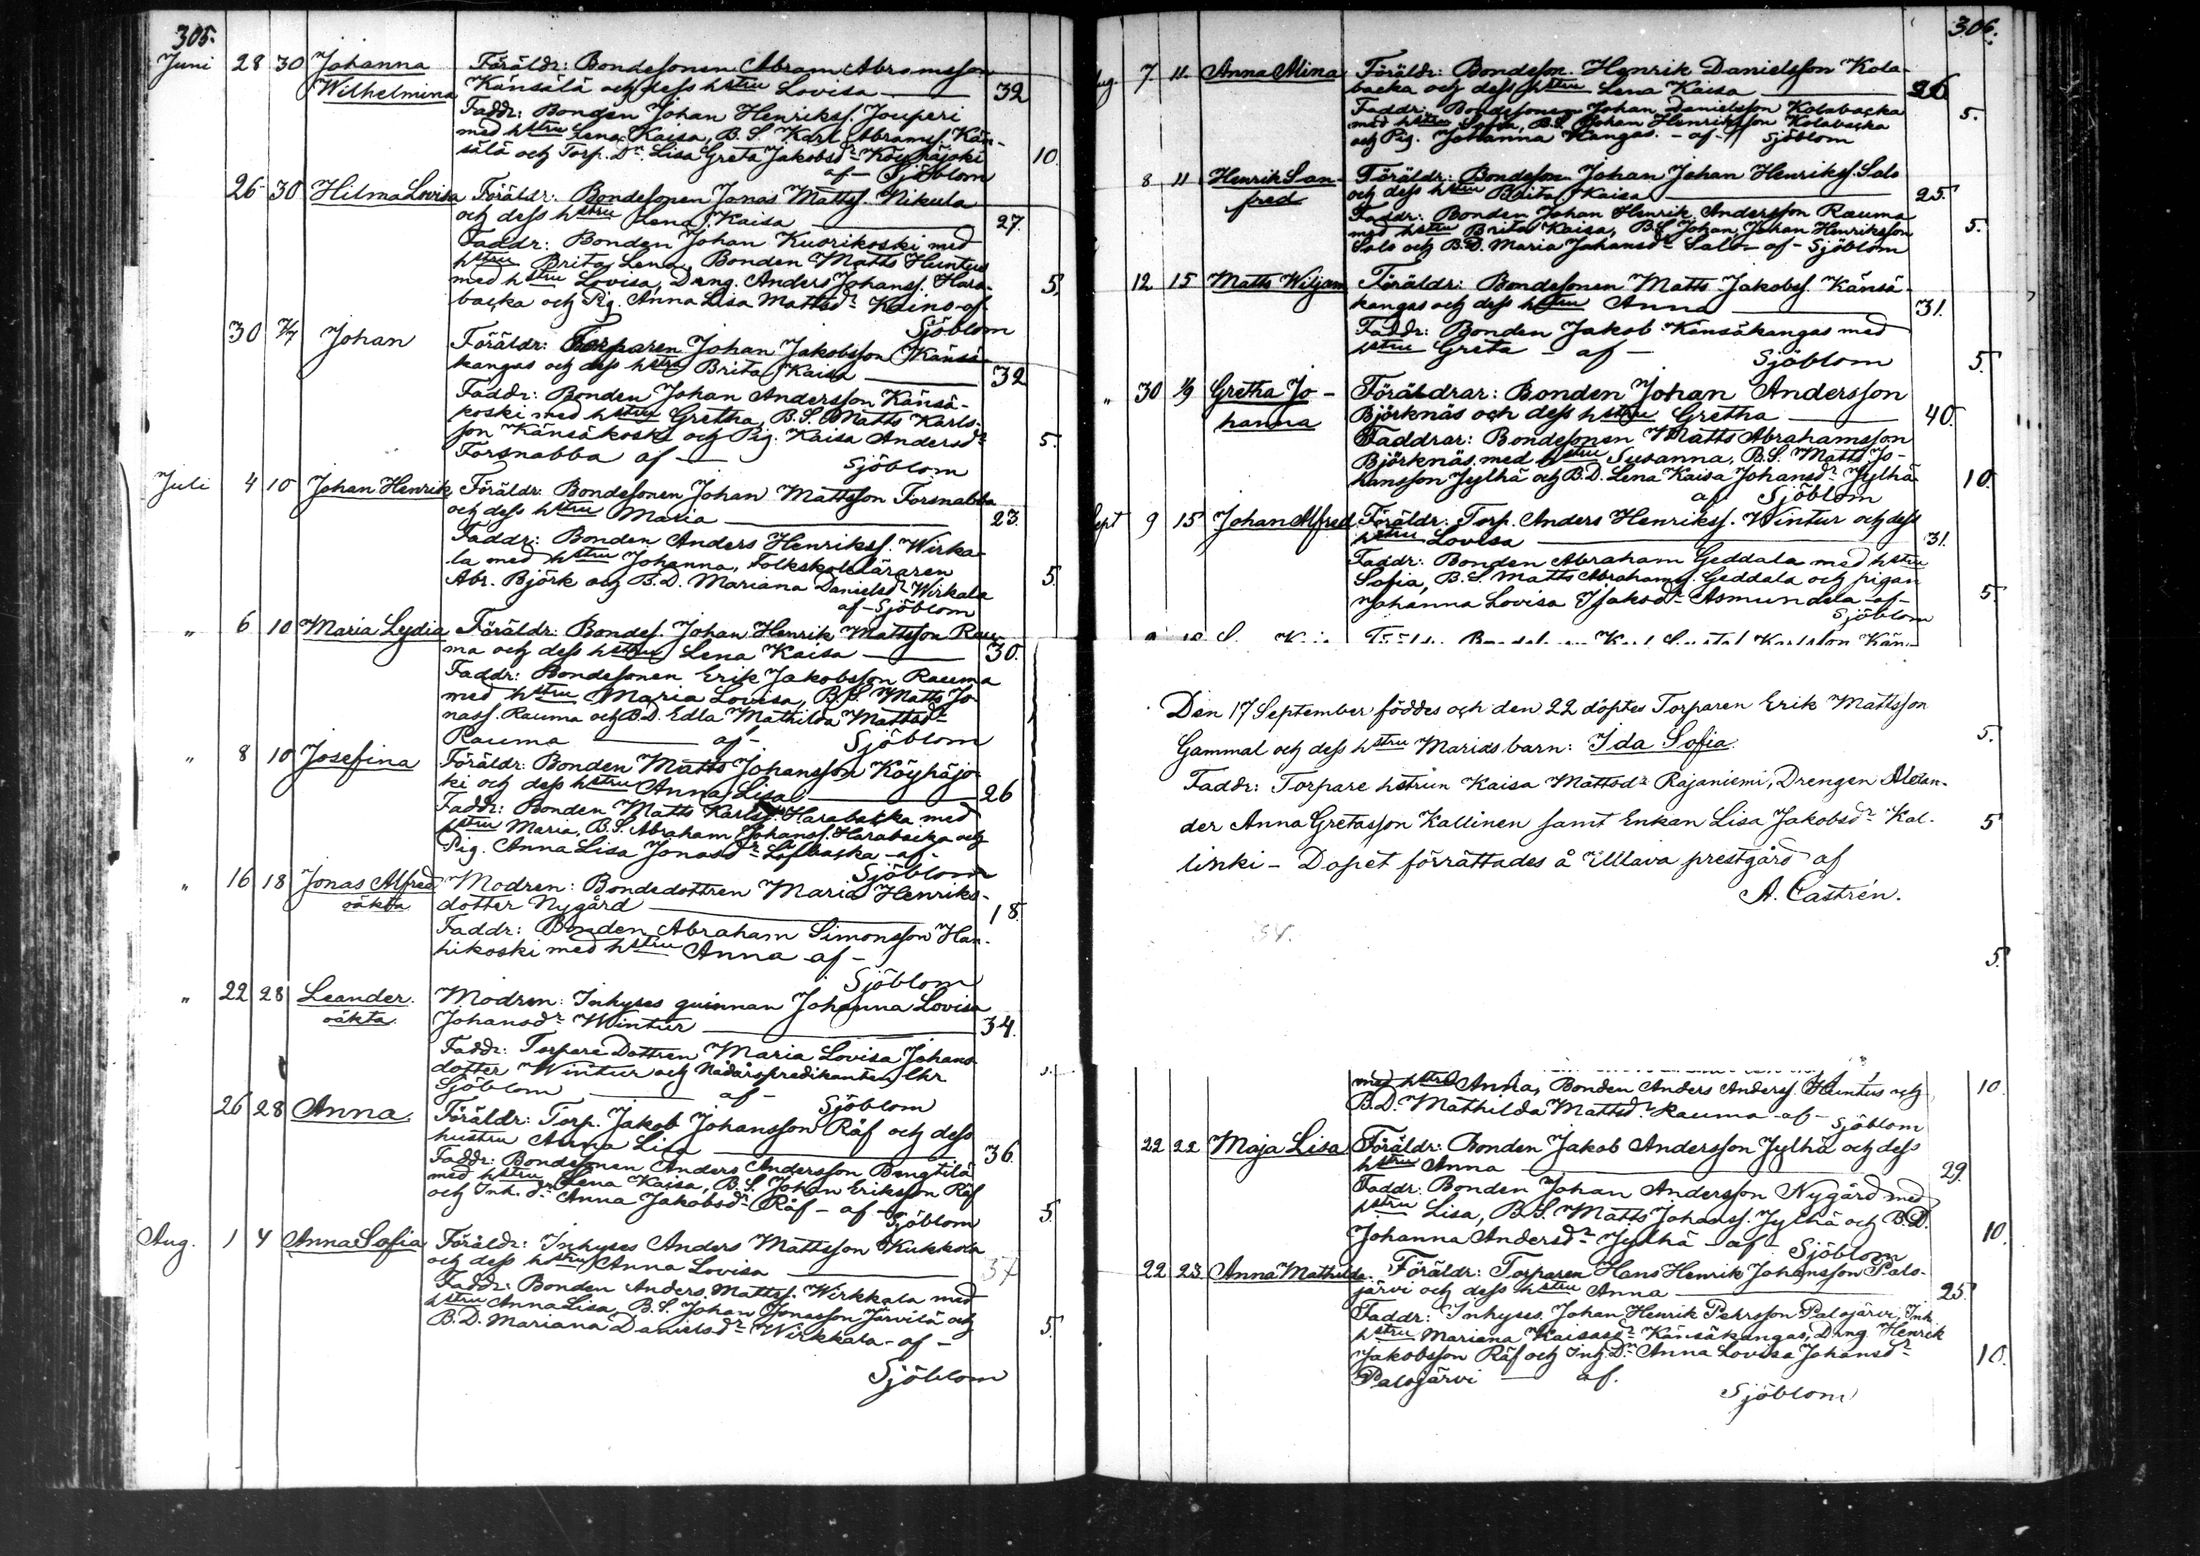 305.
Juni 28 30 Johanna Föräldr: Bondesonen Abram Abramsson
Wilhelmina Känsälä och dess hstru Lovisa — 32
Faddr: Bonden Johan Henrikss. Jouperi
med hstru Lena Kaisa, B.S. Karl Abramss. Kän-
sälä och Torp. Dr Lisa Greta Jakobsdr Köyhäjoki 10.
af — Sjöblom
26 30 Hilma Lovisa Föräldr: Bondesonen Jonas Matts. Nikula
och dess hstru Lena Kaisa — 27.
Faddr: Bonden Johan Kuorikoski med
hstru Brita Lena, Bonden Matts Huntus
med hstru Lovisa, Dräng. Anders Johanss. Hara- 5.
backa och Pig. Anna Lisa Mattsdr Keino - af -
Sjöblom
30 7/7 Johan Föräldr: Torparen Johan Jakobsson Känsä-
kangas och dess hstru Brita Kaisa — 32
Faddr: Bonden Johan Andersson Känsä-
koski med hstru Gretha, B.S. Matts Karls-
son Känsäkoski och Pig. Kaisa Andersdr 5.
Forsnabba af —
Sjöblom
Juli 4 10 Johan Henrik Föräldr: Bondesonen Johan Mattsson Forsnabba
och dess hstru Maria — 23.
Faddr: Bonden Anders Henrikss. Wirka-
la med hstru Johanna, Folkskoleläraren
Abr. Björk och B.D. Mariana Danielsdr Wirkala 5.
af - Sjöblom
" 6 10 Maria Lydia Föräldr: Bondes. Johan Henrik Mattsson Rau-
ma och dess hstru Lena Kaisa — 30.
Faddr: Bondesonen Erik Jakobsson Rauma
med hstru Maria Lovisa, B.S. Matts Jo-
nass. Rauma och B.D. Edla Mathilda Mattsdr
Rauma — af - Sjöblom
" 8 10 Josefina Föräldr: Bonden Matts Johansson Köyhäjo-
ki och dess hstru Anna Lisa — 26
Faddr: Bonden Matts Karlss. Harabacka med
hstru Maria, B.S. Abraham Johanss. Harabacka och
Pig. Anna Lisa Jonasdr Löfbacka - af -
Sjöblom
" 16 18 Jonas Alfred Modren: Bondedottren Maria Henriks-
oäkta dotter Nygård — 18.
Faddr: Bonden Abraham Simonsson Han-
hikoski med hstru Anna af -
Sjöblom
" 22 28 Leander. Modren: Inhyses qvinnan Johanna Lovisa
oäkta Johansdr Wintur — 34.
Faddr: Torpare Dottren Maria Lovisa Johans-
dotter Wintur och Nådårspredikanten Ihr
Sjöblom — af - Sjöblom
26 28 Anna Föräldr: Torp. Jakob Johansson Räf och dess
hustru Anna Lisa — 36.
Faddr: Bondesonen Anders Andersson Bengtilä
med hstru Lena Kaisa, B.S. Johan Eriksson Räf
och Inh. dr Anna Jakobsdr Räf - af - 5.
Sjöblom
Aug. 1 4 Anna Sofia Föräldr: Inhyses Anders Mattsson Kukkola
och dess hstru Anna Lovisa — 34
Faddr: Bonden Anders Matts. Wirkkala med
hstru Anna Lisa, B.S. Johan Jonasson Järvilä och
B.D. Mariana Danielsdr Wirkkala - af - 5.
Sjöblom
306.
Aug 7 11 Anna Alina Föräldr: Bondeson. Henrik Danielsson Kola-
backa och dess hstru Lena Kaisa — 26
Faddr: Bondesonen Johan Danielsson Kolabacka 5.
med hstru Sofia, B.S. Johan Henriksson Kolabacka
och Pig. Johanna Kangas. - af - Sjöblom
8 11 Henrik San- Föräldr: Bondeson Johan Johan Henrikss. Salo
fred och dess hstru Brita Kaisa — 25.
Faddr: Bonden Johan Henrik Andersson Rauma
med hstru Brita Kaisa, B.S. Johan Johan Henriksson 5.
Salo och B.D. Maria Johansdr Salo - af - Sjöblom
12 15 Matts Wiljam Föräldr: Bondesonen Matts Jakobss. Känsä-
kangas och dess hstru Anna — 31.
Faddr: Bonden Jakob Känsäkangas med
hstru Greta - af - Sjöblom 5.
" 30 1/9 Gretha Jo- Föräldrar: Bonden Johan Andersson
hanna Björknäs och dess hstru Gretha — 40.
Faddrar: Bondesonen Matts Abrahamsson
Björknäs med hstru Susanna, B.S. Matts Jo-
hansson Jylhä och B.D. Lena Kaisa Johansdr Jylhä 10.
af Sjöblom
Sept 9 15 Johan Alfred Föräldr: Torp. Anders Henrikss. Wintur och dess
hstru Lovisa — 31.
Faddr: Bonden Abraham Geddala med hstru
Sofia, B.S. Matts Abrahamss. Geddala och pigan 5.
Johanna Lovisa Isaksdr Asmundela - af -
Sjöblom
Den 17 September föddes och den 22 döptes Torparen Erik Mattsson
Gammal och dess hstru Marias barn: Ida Sofia. 5.
Faddr: Torpare hstrun Kaisa Mattsdr Rajaniemi, Drengen Alexan-
der Anna Gretasson Kallinen samt Enkan Lisa Jakobsdr Kal- 5
linki - Dopet förrättades å Ullava prestgård af
A. Castrén.
5.
med hstru Anna, Bonden Anders Anderss. Huntus och 10.
B.D. Mathilda Mattsdr Rauma - af - Sjöblom
22 22 Maja Lisa Föräldr: Bonden Jakob Andersson Jylhä och dess
hstru Anna — 29.
Faddr: Bonden Johan Andersson Nygård med
hstru Lisa, B.S. Matts Johanss. Jylhä och B.D.
Johanna Andersdr Jylhä - af - Sjöblom 10.
22 23 Anna Mathilda. Föräldr: Torparen Hans Henrik Johansson Palo-
järvi och dess hstru Anna — 25.
Faddr: Inhyses Johan Henrik Pehrsson Palojärvi, Inh.
hstru Mariana Kaisasdr Känsäkangas, Dräng Henrik
Jakobsson Räf och Inh. Dr Anna Lovisa Johansdr 10.
Palojärvi — af.
Sjöblom